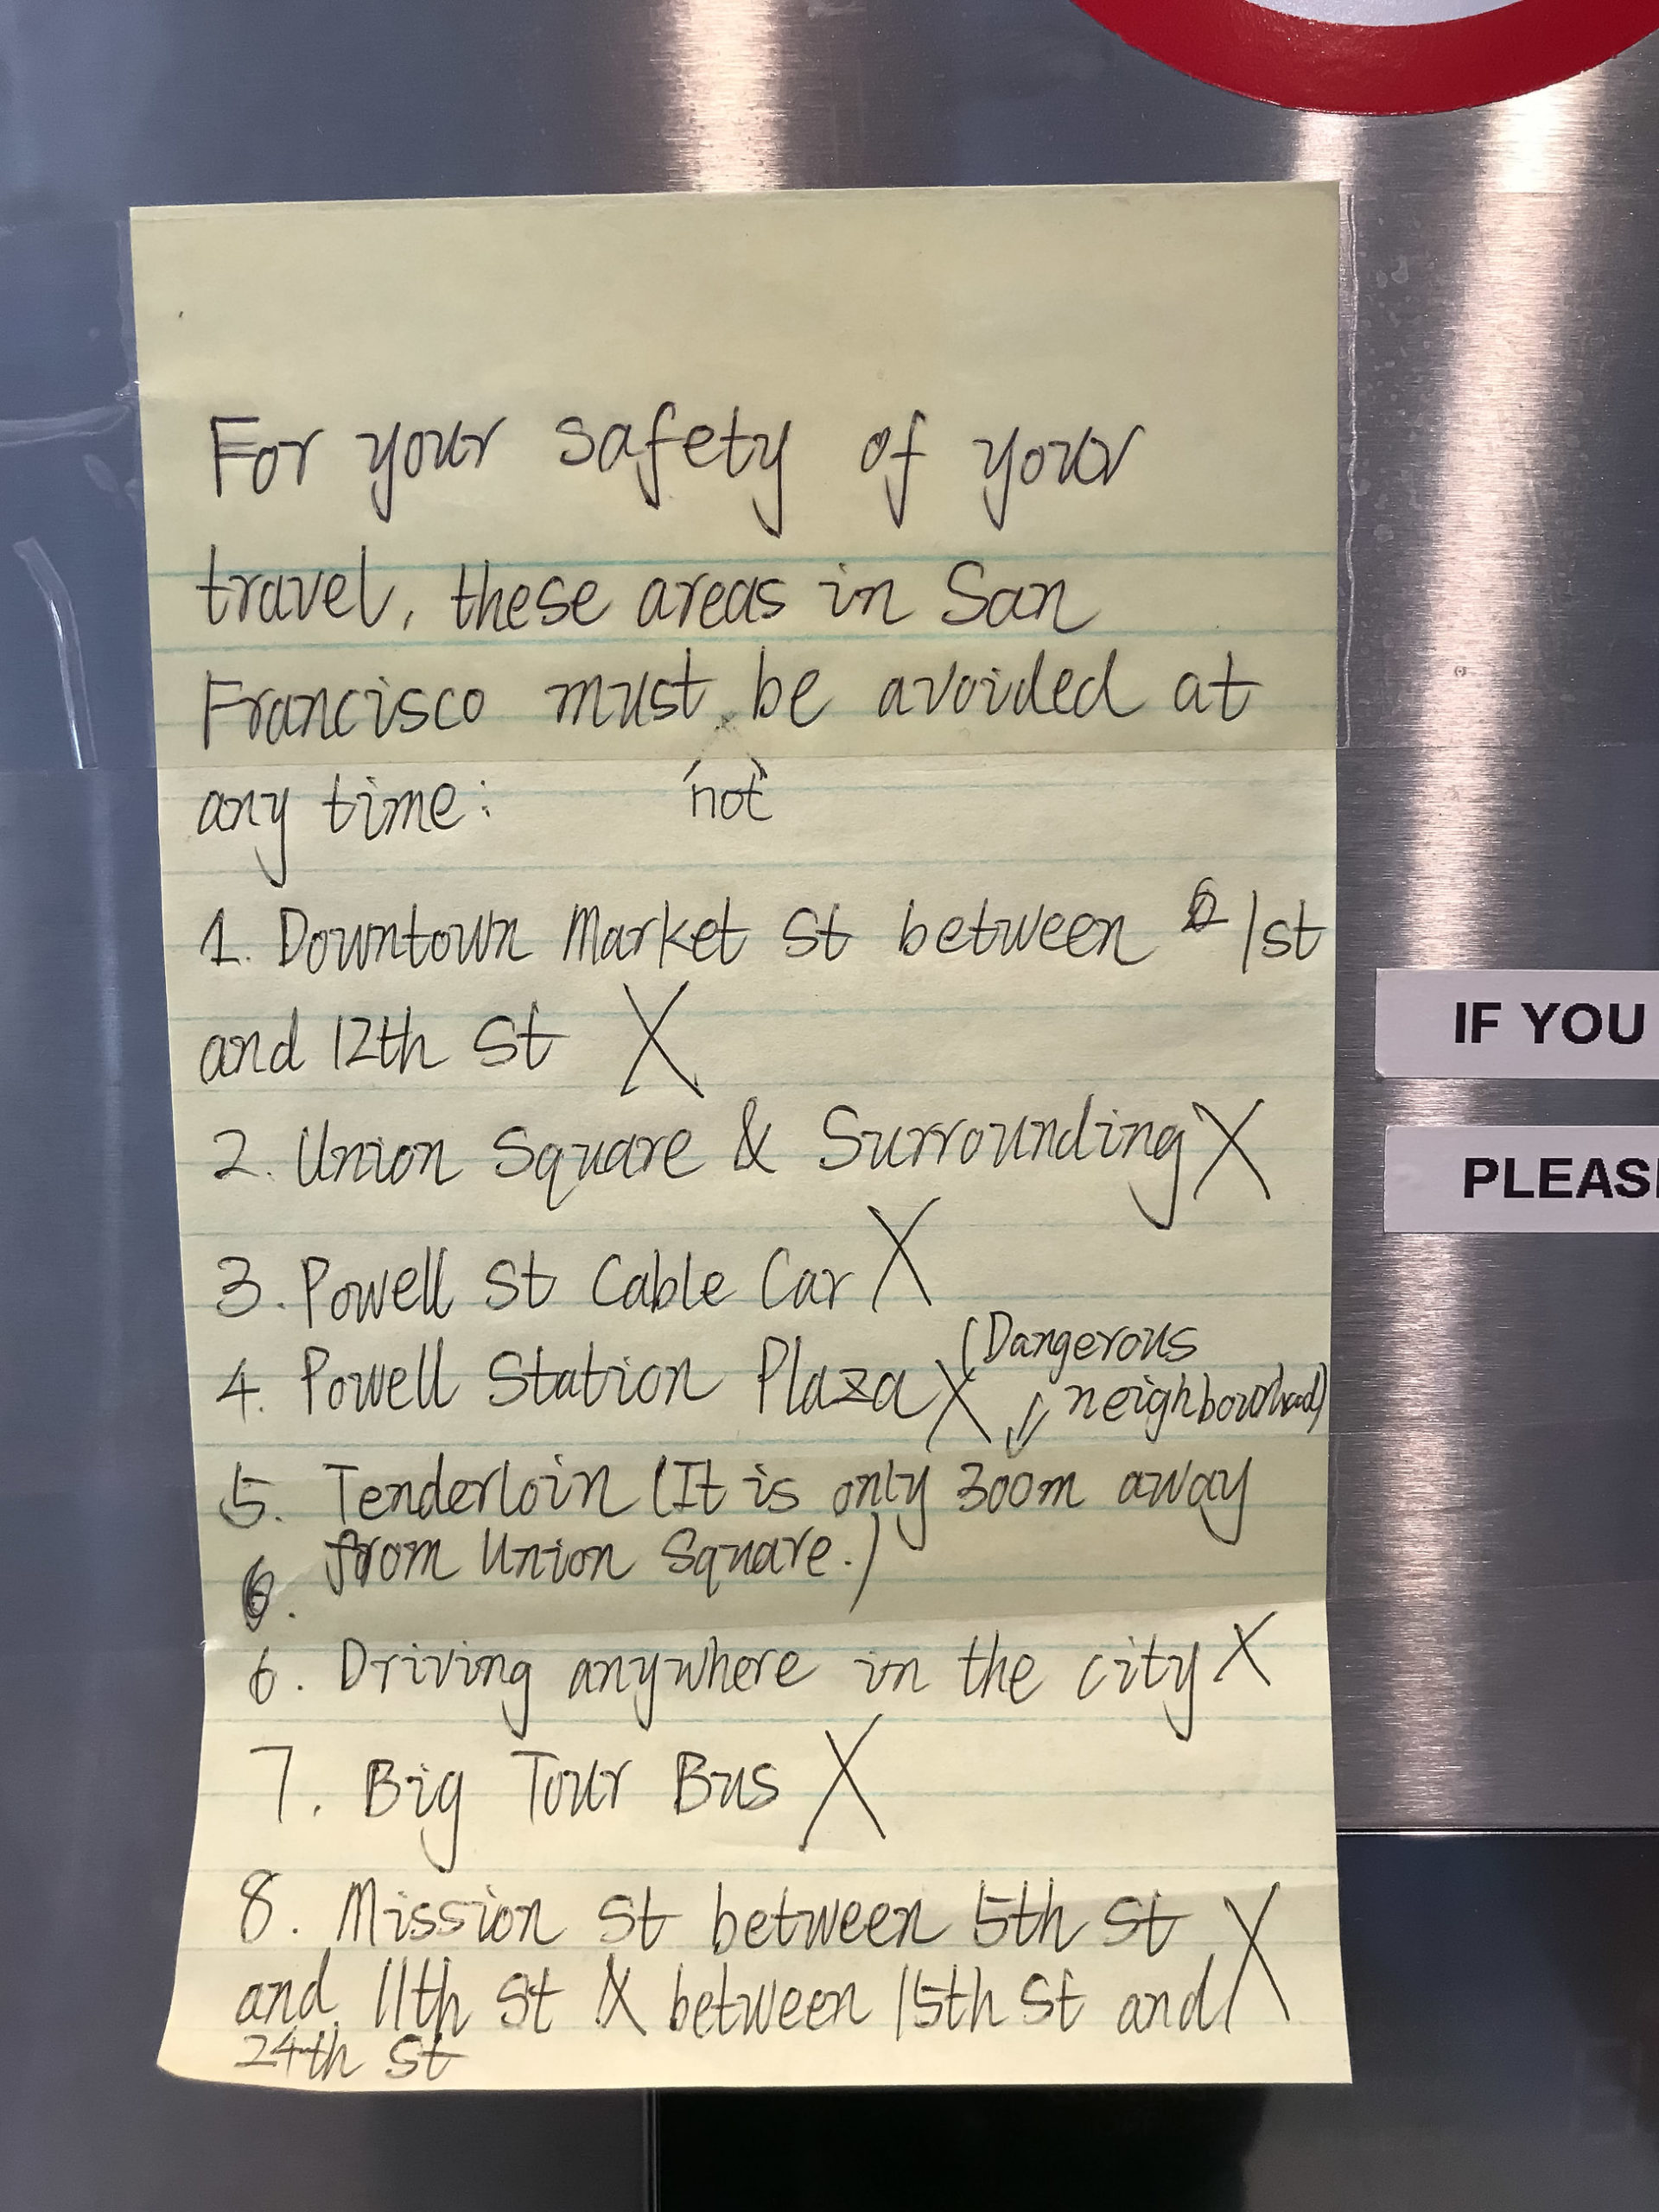 For your safety of your
travel, these areas in San
Francisco must be avoided at
not
any time:
1. Downtown Market St between 1st
and 12th St X
2. Union Square & Surrounding X
3. Powell St Cable Car X
4. Powell Station Plaza X (Dangerous
neighbourhood)
5. Tenderloin (It is only 300m away
from Union Square.)
6.
6. Driving anywhere in the city X
7. Big Tour Bus X
8. Mission St between 5th St X
and 11th St & between 15th St and
24th St
IF YOU
PLEAS